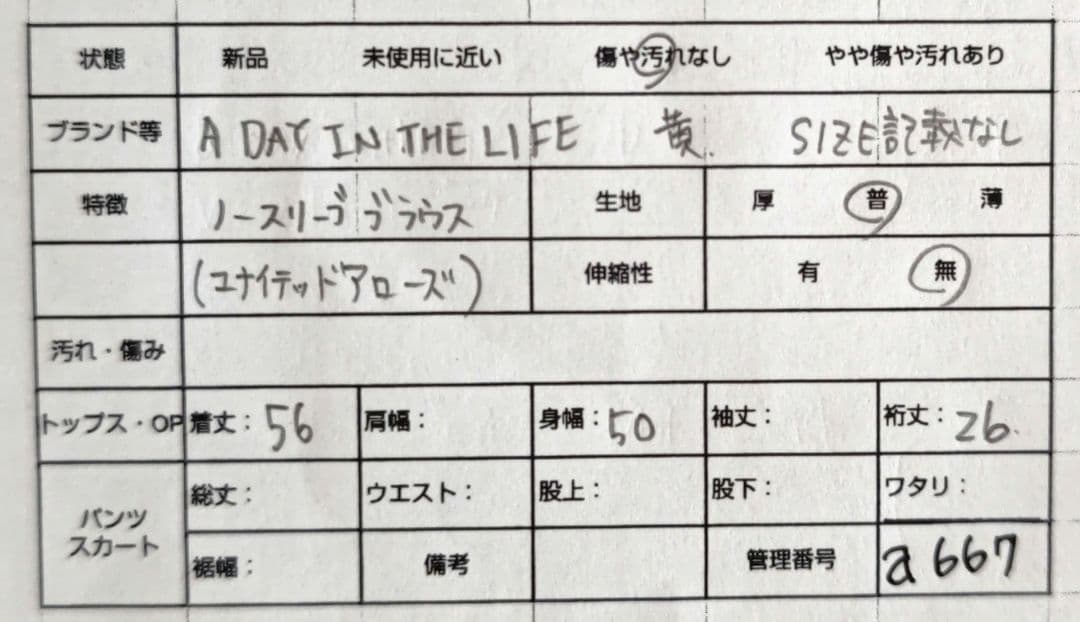 状態 新品 未使用に近い 傷や汚れなし やや傷や汚れあり
ブランド等 A DAY IN THE LIFE 黄. SIZE記載なし
特徴 ノースリーブブラウス 生地 厚 普 薄
(ユナイテッドアローズ) 伸縮性 有 無
汚れ・傷み
トップス・OP 着丈: 56 肩幅: 身幅: 50 袖丈: 裄丈: 26.
パンツ スカート 総丈: ウエスト: 股上: 股下: ワタリ:
裾幅: 備考 管理番号 a667